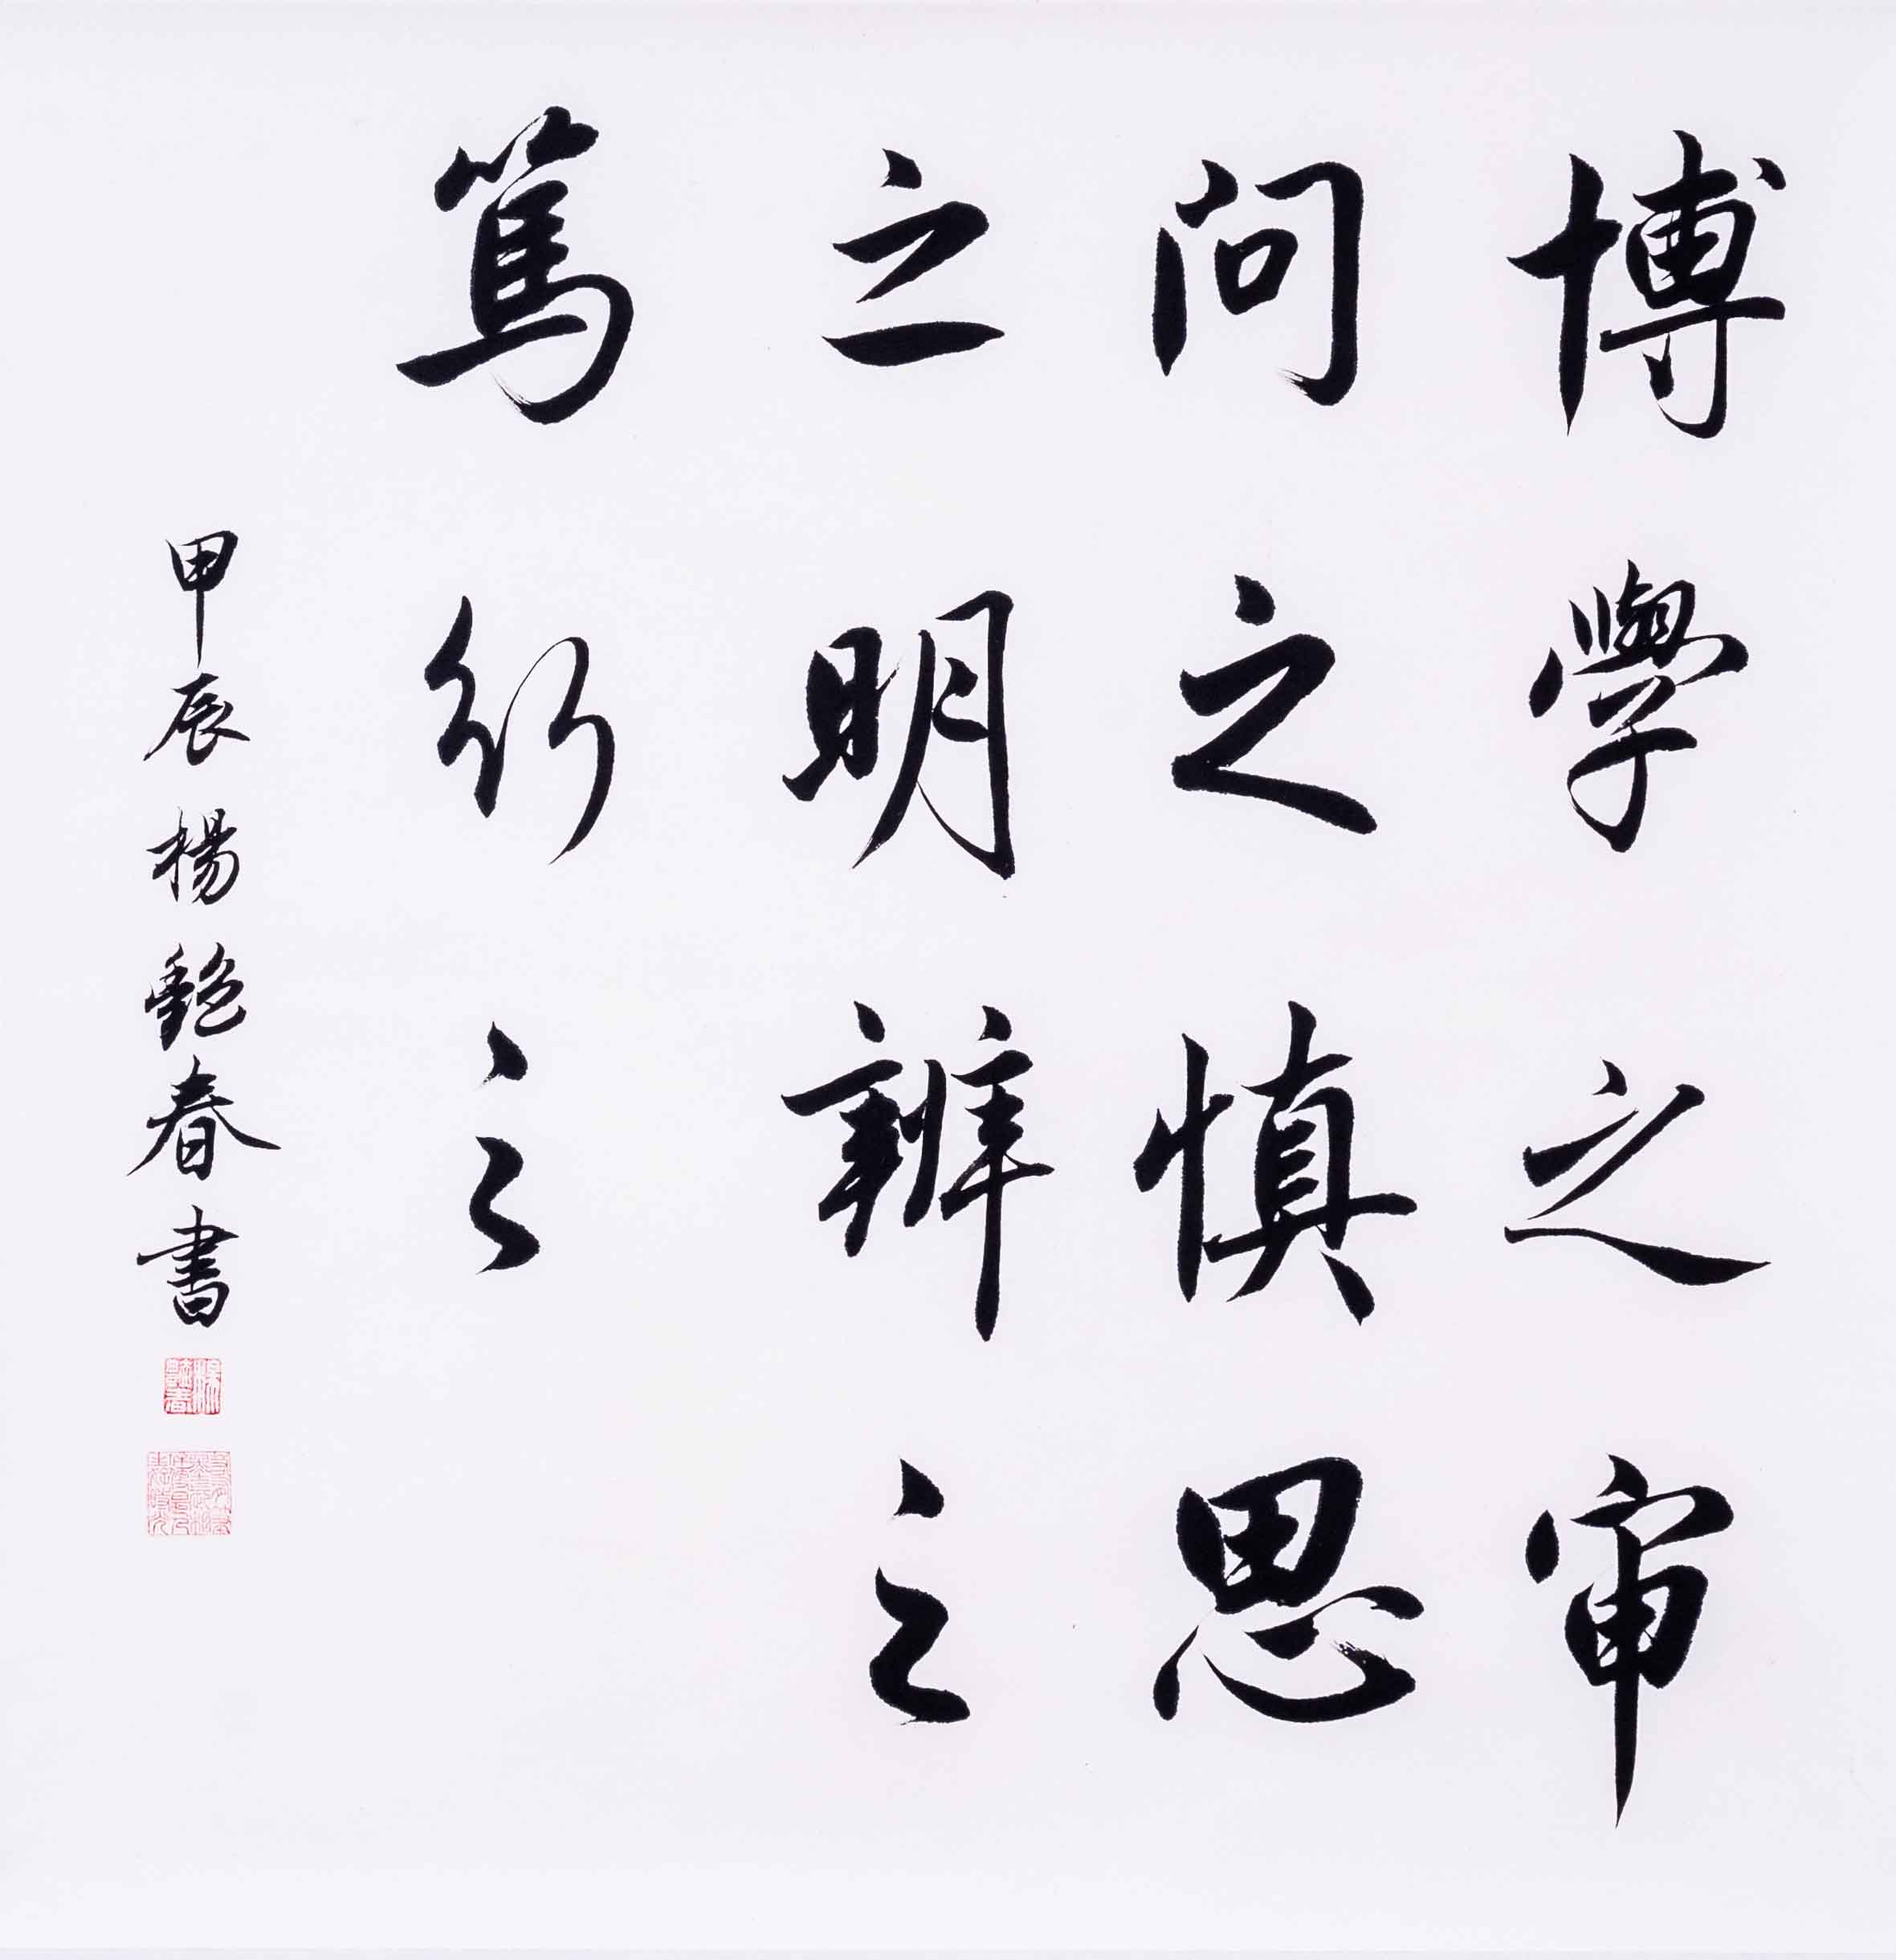 博學之审
问之慎思
之明辨之
篤行之
甲辰楊艷春書